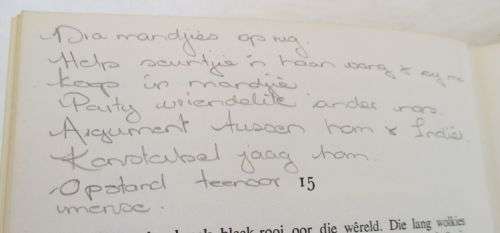 Dra mandjies op rug.
Help seuntjie 'n haan vang &
Koop 'n mandjie
Party vriendelik ander nors.
Argument tussen hom & Indiër.
Konstabel jaag hom.
Opstand teenoor 15
mense.
bleek-rooi oor die wêreld. Die lang wolkies